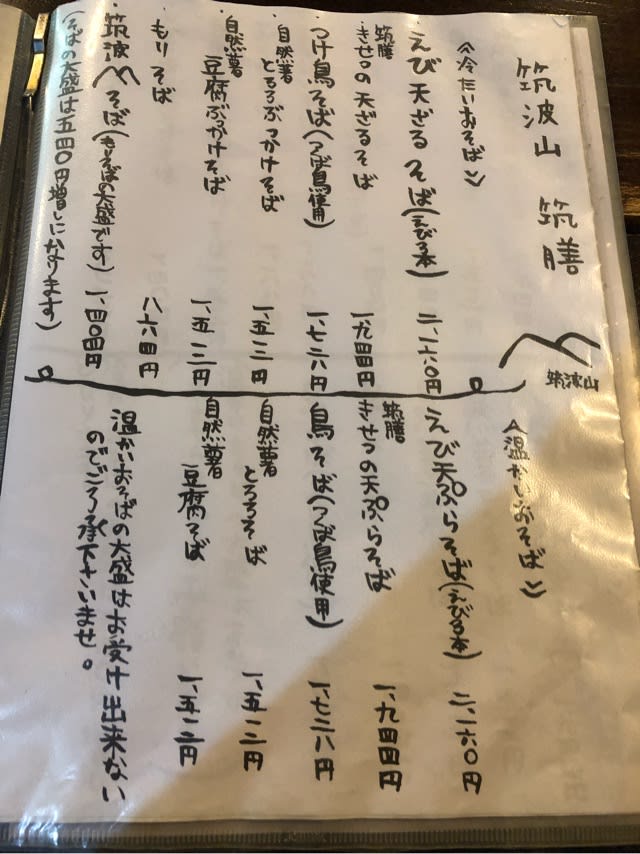 筑波山 筑膳
筑波山
≪冷たいおそば≫
えび天ざるそば(えび3本) 二、一六〇円
筑膳
きせつの天ざるそば 一、九四四円
つけ鳥そば(つくば鳥使用) 一、七二八円
自然薯
とろろぶっかけそば 一、五一二円
自然薯
豆腐ぶっかけそば 一、五一二円
もりそば 八六四円
筑波そば(もりそばの大盛です) 一、四〇四円
(そばの大盛は五四〇円増しになります)
≪温かいおそば≫
えび天ぷらそば(えび3本) 二、一六〇円
筑膳
きせつの天ぷらそば 一、九四四円
鳥そば(つくば鳥使用) 一、七二八円
自然薯
とろろそば 一、五一二円
自然薯
豆腐そば 一、五一二円
温かいおそばの大盛はお受け出来ない
のでご了承下さいませ。